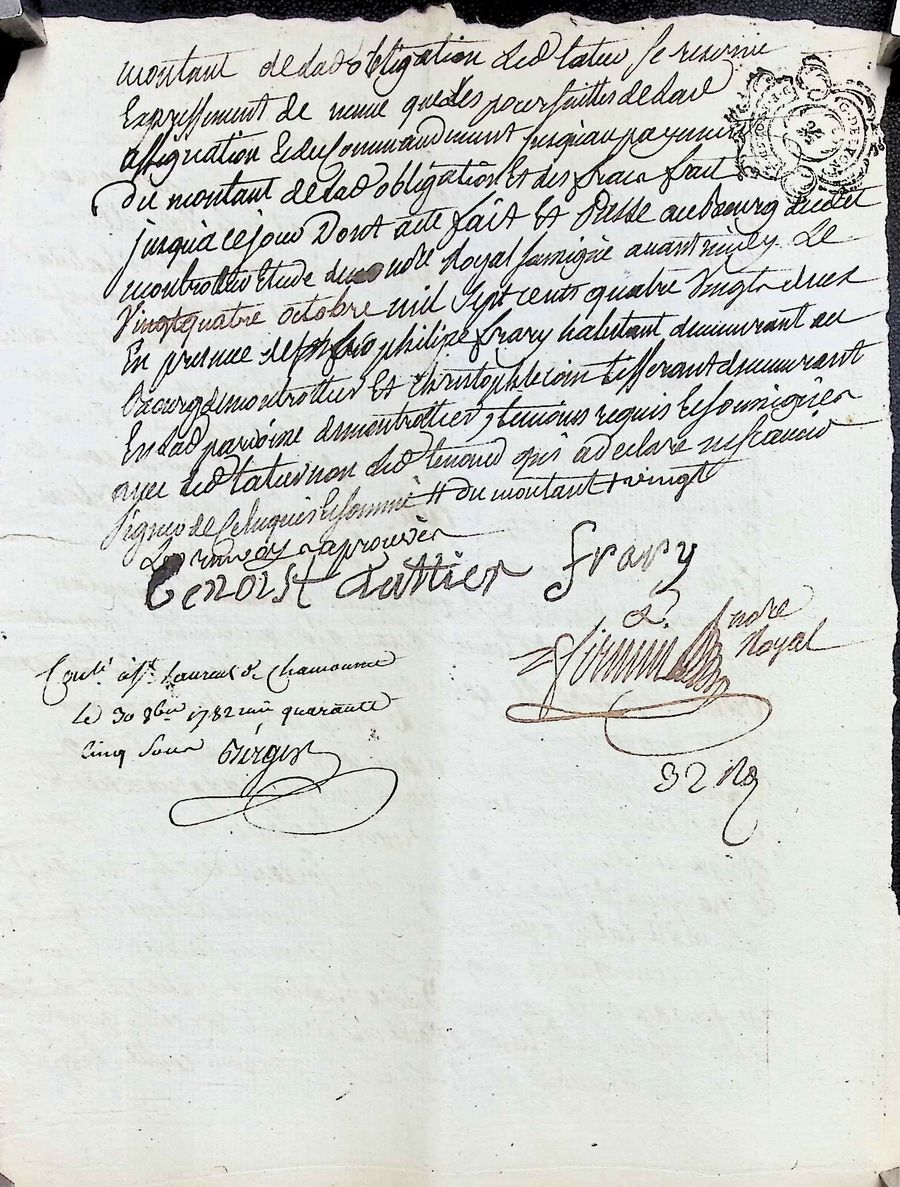 montant de lad obligation led latier se reserve
Expressement de venue que les poursuittes de lad
assignation Et du Commandement jusqu'au payement
Du montant de lad obligation Et des frais fait
jusqua ce jour Dont acte fait Et Passé au bourg dudit
montrottier Etude du nore Royal soussigné avant midy Le
Vingt quatre octobre mil sept cents quatre Vingts deux
En presence de philipe frary habitant demeurant au
bourg de montrottier Et christophle tisserant demeurant
En lad paroisse de montrottier, temoins requis Et soussignés
avec led latier non led qui a declaré ne scavoir
signer de ce enquis Et sommé # du montant + vingt
Les renvoy approuvés
Benoist Lattier frary
nore
Royal
Conlé à St Laurent de Chamousset
Le 30 8bre 1782 reçu quarante
Cinq Sous
32